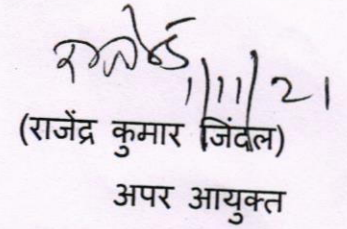 1/11/21
(राजेंद्र कुमार जिंदल)
अपर आयुक्त